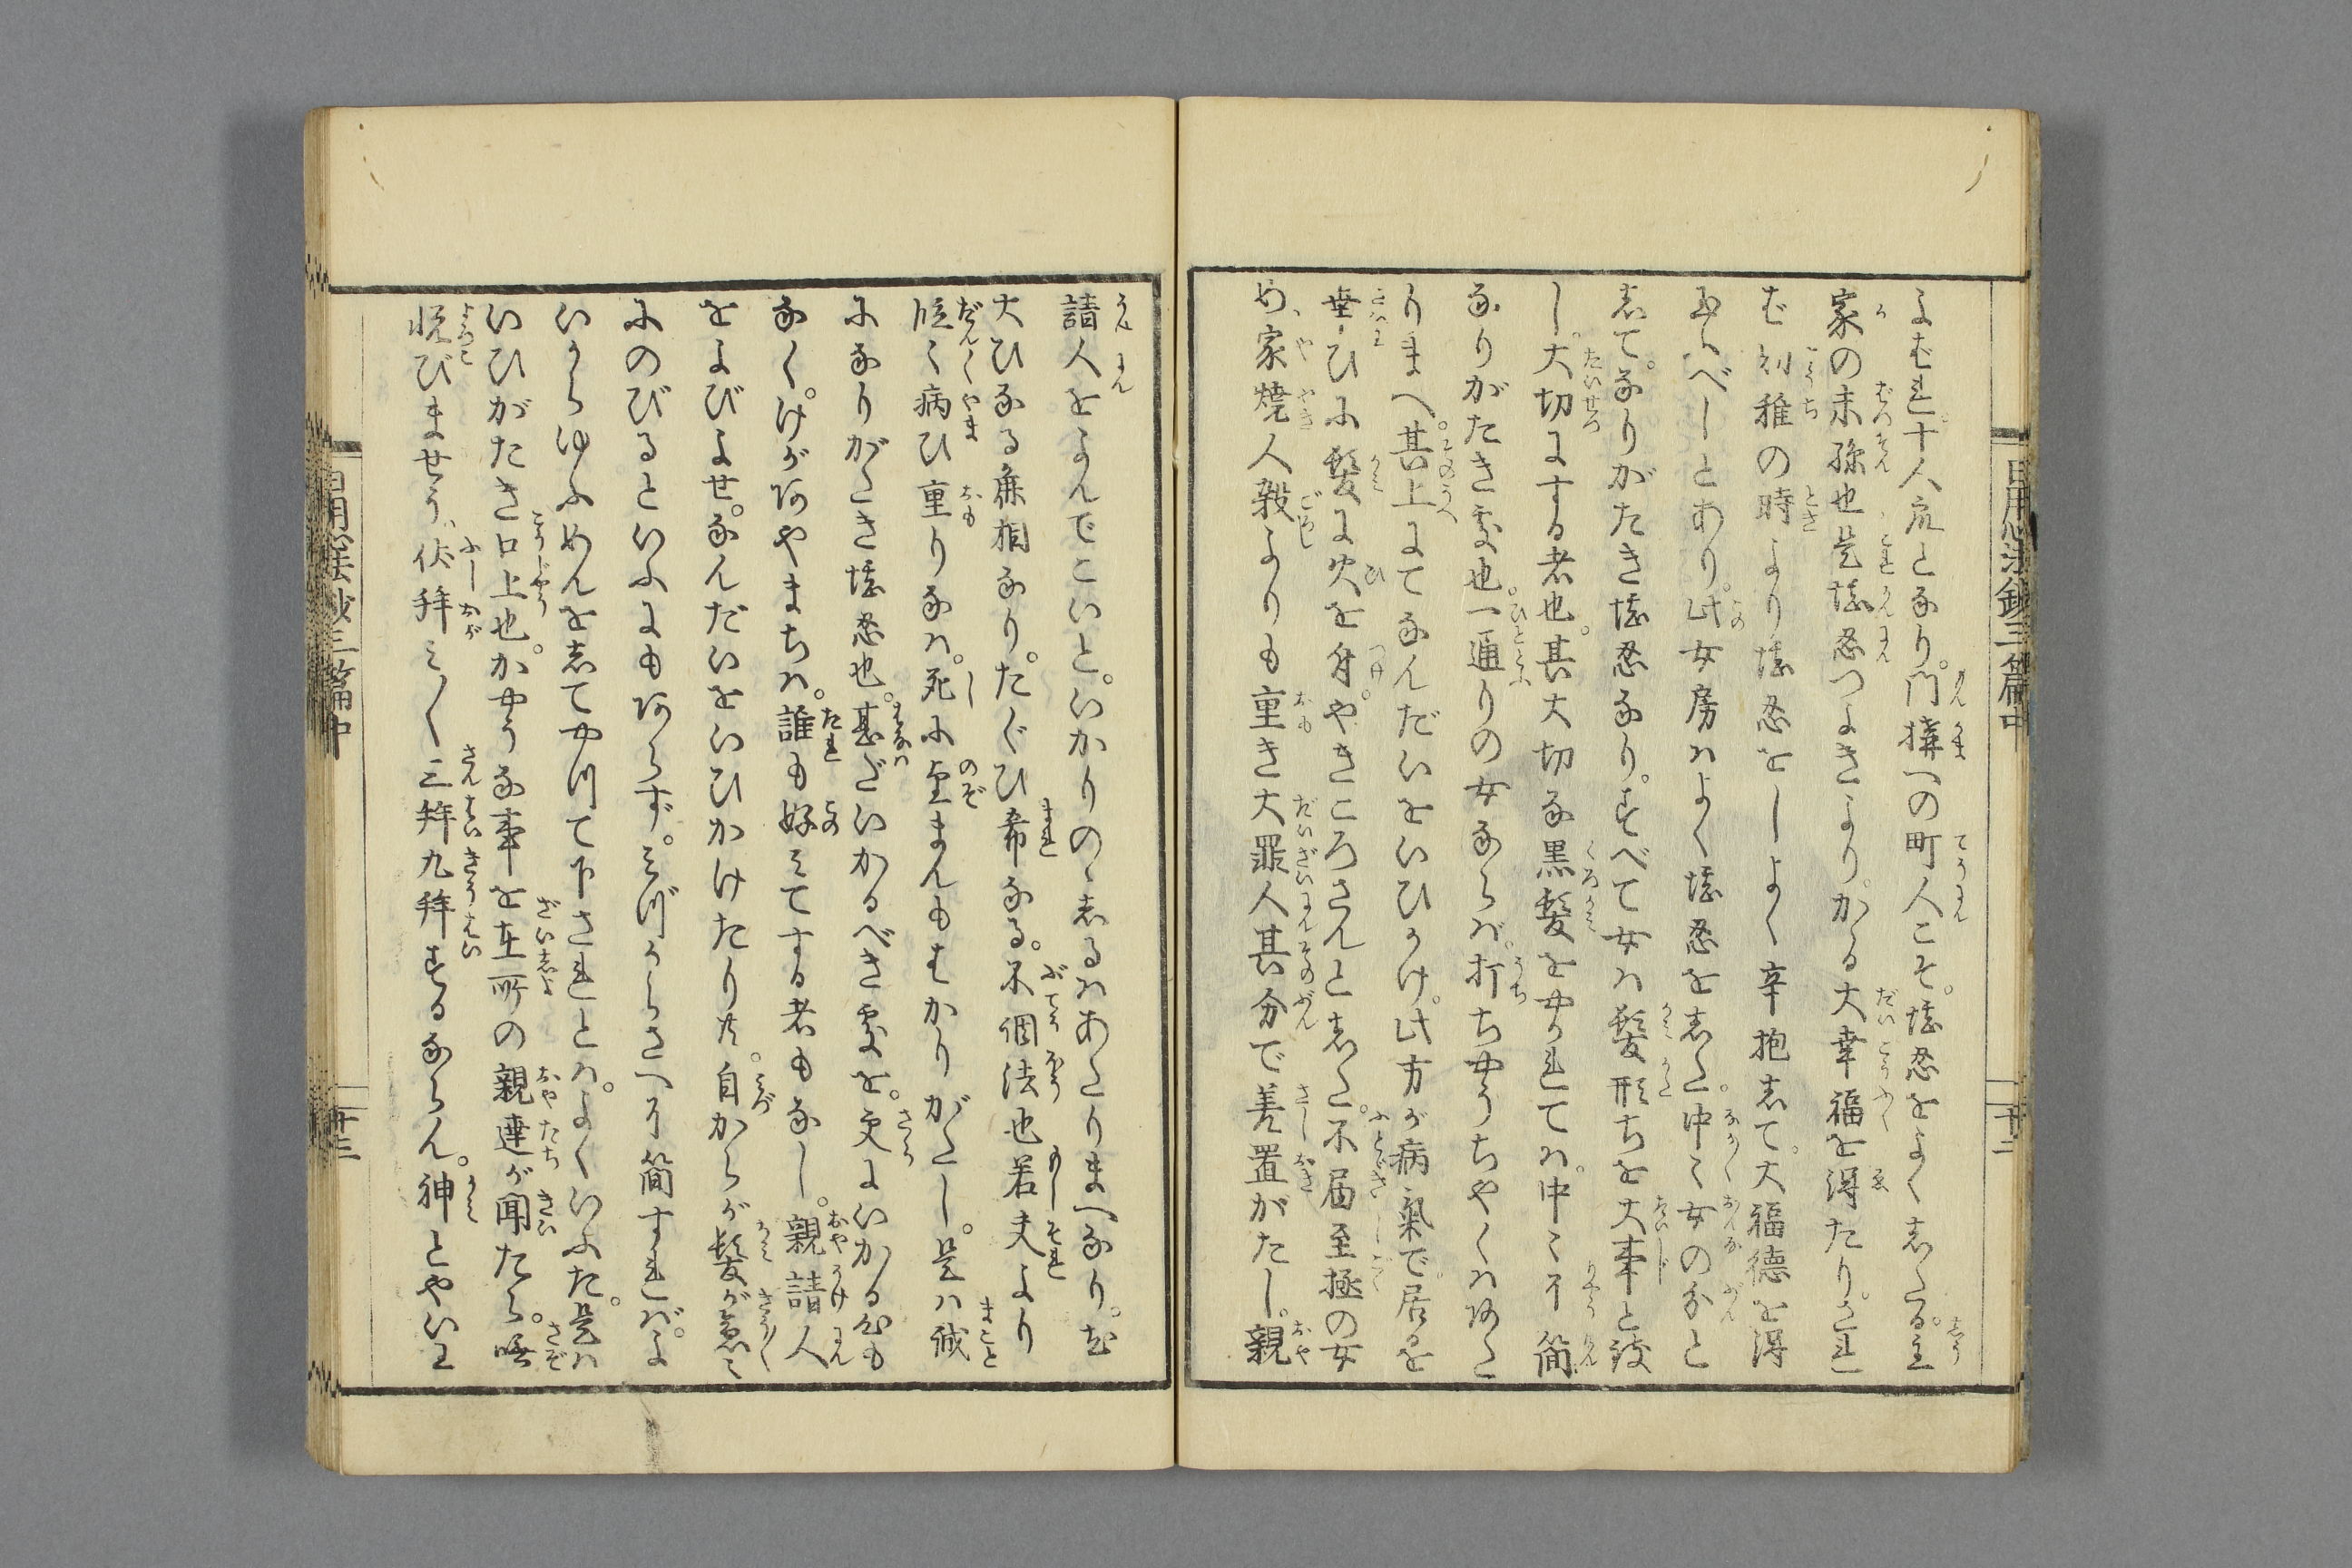 日用心法鈔三篇中
廿二
よむまれ十人衆となり。門搆への町人こそ。堪忍をよくしたる。主
家の末孫也是堪忍つよきより。かゝる大幸福を得たり。され
ば幼稚の時より堪忍をしよく辛抱して。大福徳を得
玉ふべしとあり。此女房はよく堪忍をした。中々女の分と
して。なりがたき堪忍なり。すべて女は髪形ちを大事と致
し。大切にする者也。其大切な黒髪をやかれては。中々不簡
なりがたき処也。一通りの女ならば。打ちやうちやくはあた
りまへ。其上にてなんだいをいひかけ。此方が病氣で居を
幸ひに髪に火を付。やきころさんとした。不届至極の女
め家焼人殺よりも重き大罪人其分で差置がたし。親
請人をよんでこいと。いかりのゝしるはあたりまへなり。尤
大ひなる麁相なり。たぐひ希なる。不調法也若夫より
段々病ひ重りなば。死に望まんもはかりがたし。是は誠
になりがたき堪忍也。甚だいかるべき処を。更にいかる色も
なく。けがあやまちは。誰も好みてする者もなし。親請人
をよびよせ。なんだいをいひかけたり共。自からが髪が急に
にのびるといふにもあらず。みづからさへ了簡すれば。よ
いからゆふめんをしてやつて下されとは。よくいふた。是は
いひがたき口上也。かやうな事を在所の親達が聞たら。嘸
悦びませう。伏拝み〳〵三拝九拝するならん。神とやいわ
日用心法鈔三篇中
廿三